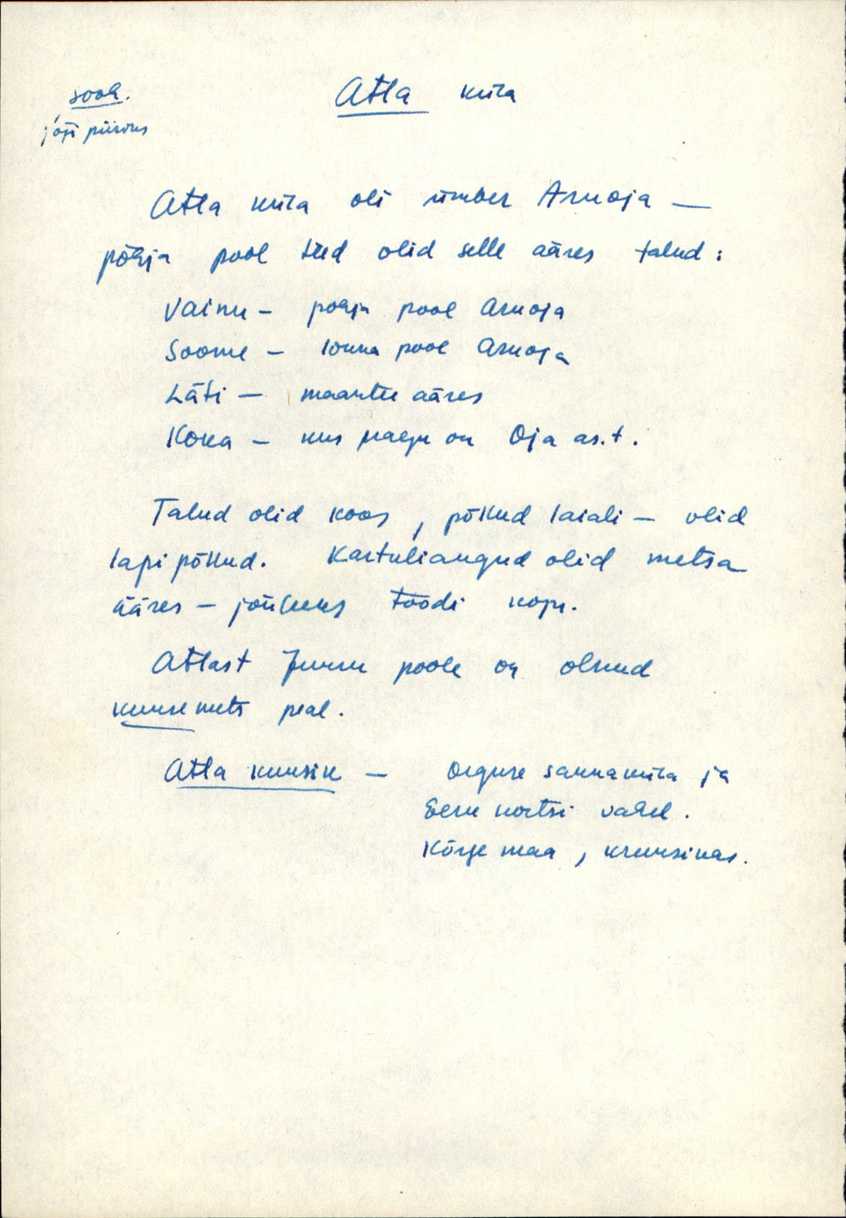 sook. Atla küla
jõgi piiriks
Atla küla oli ümber Arnoja —
põhja pool teed olid selle ääres talud:
Vainu — põhja pool Arnoja
Soome — lõuna pool Arnoja
Läti — maantee ääres
Koka — kus praegu on Oja as.t.
Talud olid koos, põllud laiali — olid
lapi põllud. Kartuliaugud olid metsa
ääres — jõuluks toodi koju.
Atlast Juuru poole on olnud
kuuse mets peal.
Atla kuusik — Orguse saunaküla ja
Eeru kortsi vahel.
Kõrge maa, kruusikas.